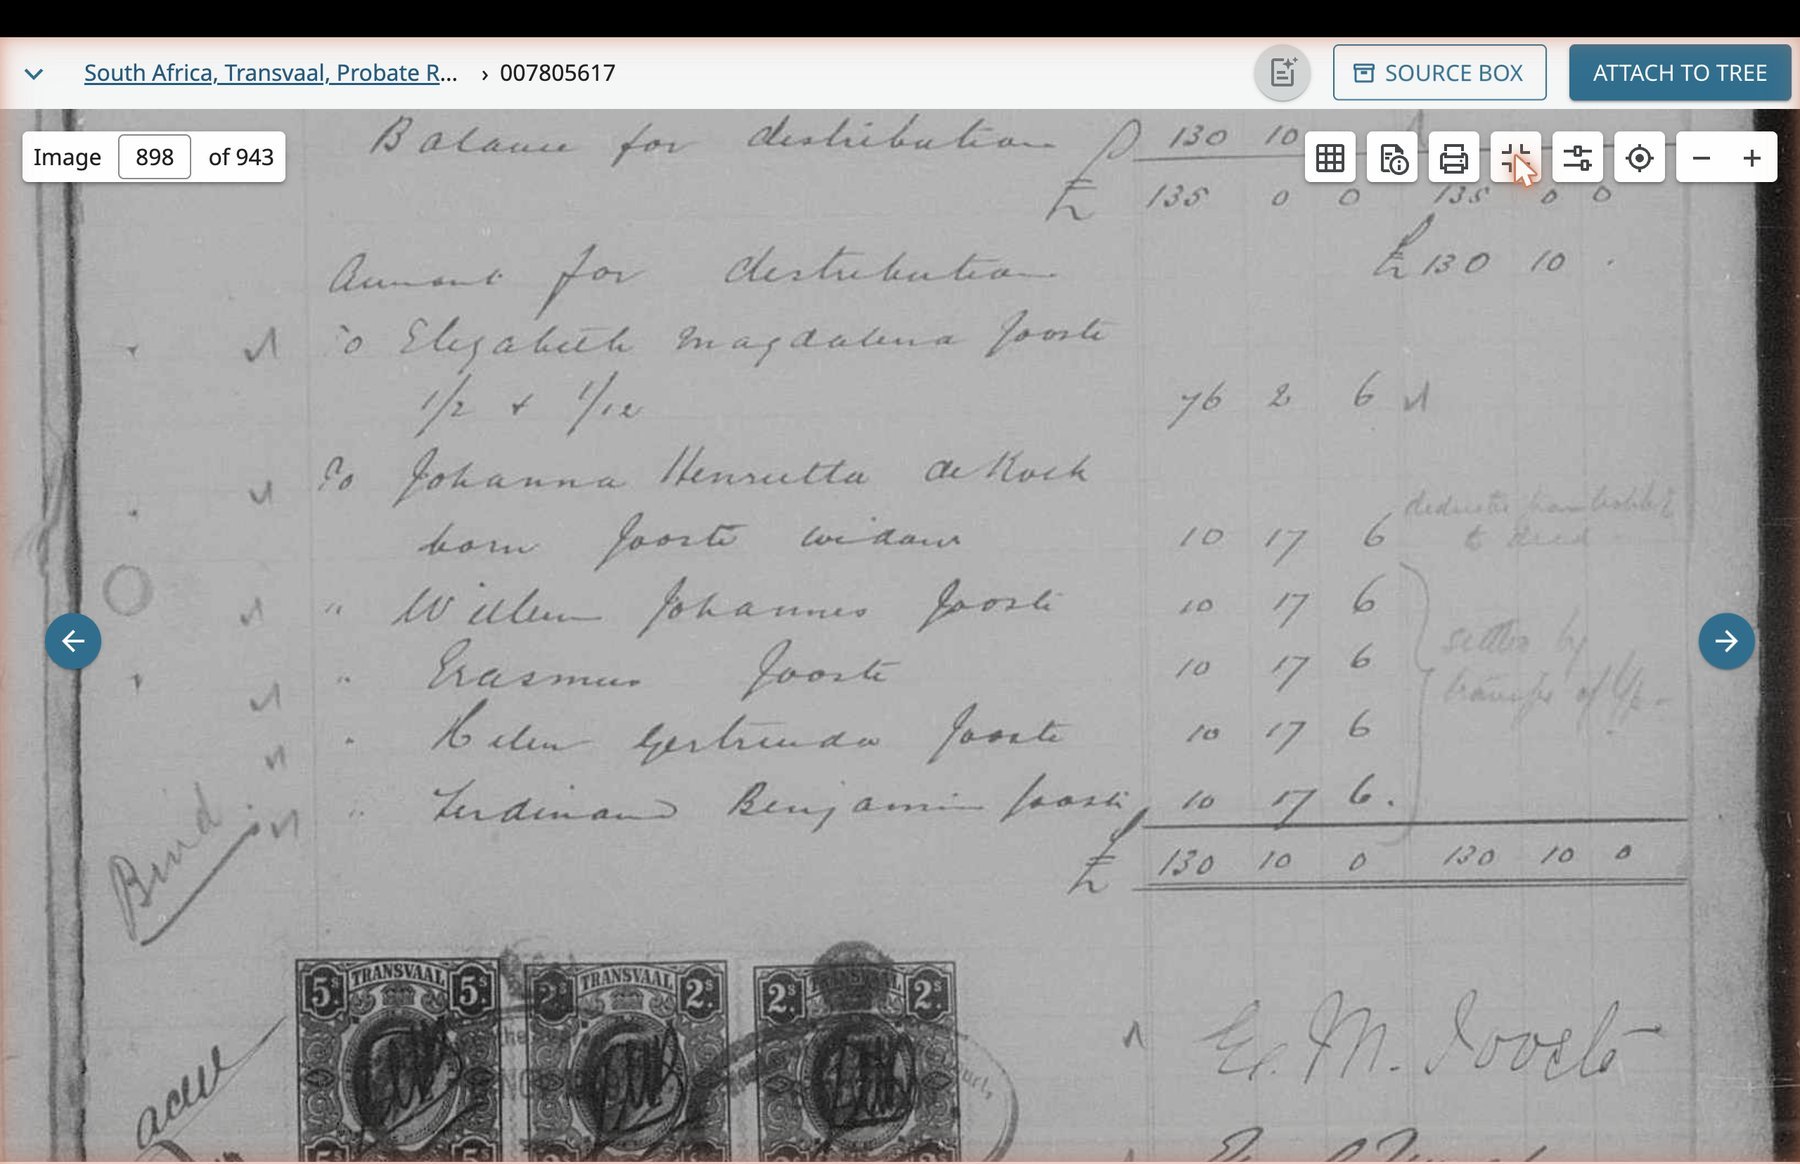 South Africa, Transvaal, Probate R... › 007805617
SOURCE BOX
ATTACH TO TREE
Image 898 of 943
Balance for distribution 130 10
£ 135 0 0 135 0 0
Amount for distribution £130 10 .
To Elizabeth Magdalena Jooste
1/2 + 1/12 76 2 6
To Johanna Henrietta de Kock
born Jooste widow 10 17 6
" Willem Johannes Jooste 10 17 6
" Erasmus Jooste 10 17 6
" Helen Gertruida Jooste 10 17 6
" Ferdinand Benjamin Jooste 10 17 6.
settled by
transfer of
£ 130 10 0 130 10 0
Bind
5s. TRANSVAAL 5s.
2s. TRANSVAAL 2s.
2s. TRANSVAAL 2s.
E. M. Jooste